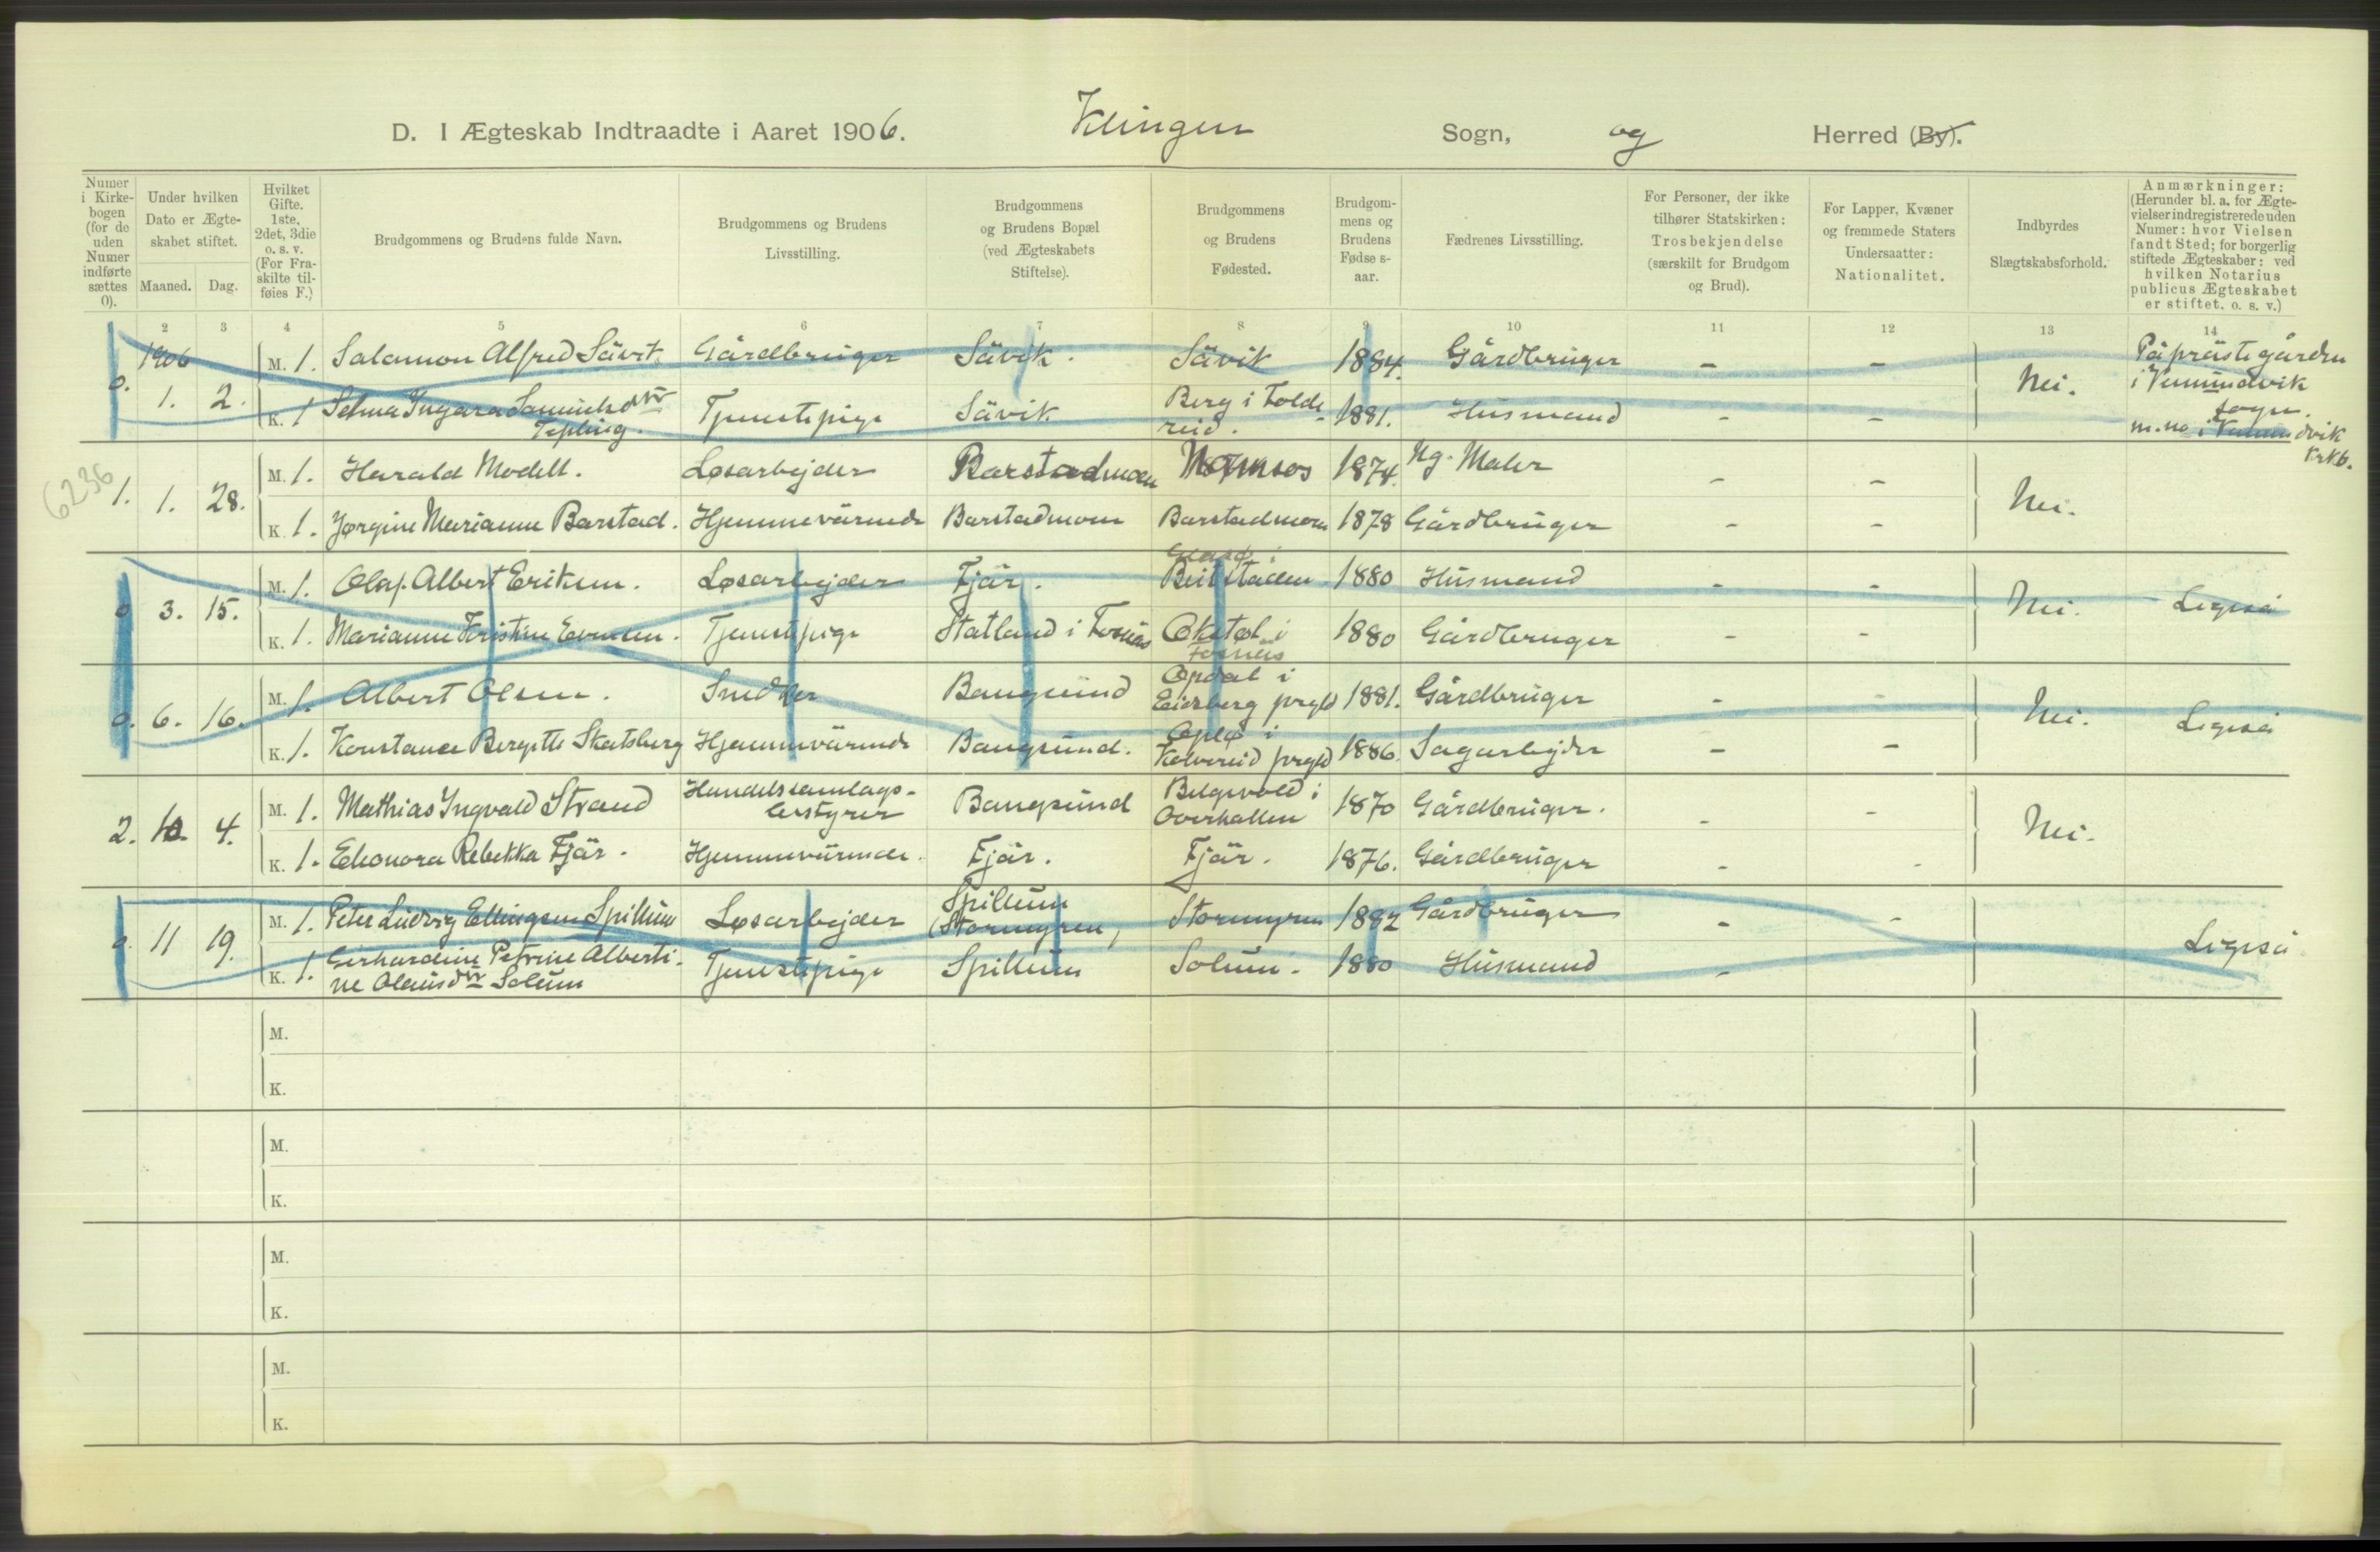 D. I Ægteskab Indtraadte i Aaret 1906. Klingen Sogn, og Herred (By).
Numer i Kirkebogen (for de uden Numer indførte sættes 0).
Under hvilken Dato er Ægteskabet stiftet.
Maaned. Dag.
Hvilket Gifte. 1ste, 2det, 3die o. s. v. (For Fraskilte tilføies F.)
Brudgommens og Brudens fulde Navn.
Brudgommens og Brudens Livsstilling.
Brudgommens og Brudens Bopæl (ved Ægteskabets Stiftelse).
Brudgommens og Brudens Fødested.
Brudgommens og Brudens Fødselsaar.
Fædrenes Livsstilling.
For Personer, der ikke tilhører Statskirken: Trosbekjendelse (særskilt for Brudgom og Brud).
For Lapper, Kvæner og fremmede Staters Undersaatter: Nationalitet.
Indbyrdes Slægtskabsforhold.
Anmærkninger: (Herunder bl. a. for Ægtevielser indregistrerede uden Numer: hvor Vielsen fandt Sted; for borgerlig stiftede Ægteskaber: ved hvilken Notarius publicus Ægteskabet er stiftet, o. s. v.)
2 3 4 5 6 7 8 9 10 11 12 13 14
1906
0. 1. 2. M. 1. Salamon Alfred Sävik Gårdbruger Sävik. Sävik 1884. Gårdbruger - - Nei. På prästegården i Vemundvik sogn.
K. 1 Selma Ingara Samuelsdtr Tepling. Tjenestepige Sävik Berg i Foldereid. 1881. Husmand - - m. no i Vemundvik Krkb.
6236
1. 1. 28. M. 1. Harald Modell. Løsarbejder Barstadmoen Namsos 1874. Ug. Maler - - Nei.
K. 1. Jørgine Marianne Barstad. Hjemmevärende Barstadmoen Barstadmoen 1878 Gårdbruger - -
0 3. 15. M. 1. Olaf Albert Eriksen. Løsarbejder Fjär. i Beitstaden 1880 Husmand - - Nei. Ligeså
K. 1. Marianne Kristine Evensen. Tjenestepige Statland i Fosnäs i Fosnäs 1880 Gårdbruger - -
0. 6. 16. M. 1. Albert Olsen. Snedker Bangsund Opdal i Eidsberg prgld 1881. Gårdbruger - - Nei. Ligeså
K. 1. Konstance Bergitte Skatsberg Hjemmevärende Bangsund. Oplø i Kolvereid prgld 1886. Sagarbejder - -
2. 10. 4. M. 1. Mathias Ingvald Strand Handelssamlagsbestyrer Bangsund i Overhallen 1870 Gårdbruger. - - Nei.
K. 1. Eleonora Rebekka Fjär. Hjemmevärende. Fjär. Fjär. 1876. Gårdbruger - -
0. 11 19. M. 1. Peter Ludvig Ellingsen Spillum Løsarbejder Spillum (Stormyren) Stormyren 1882 Gårdbruger - - Ligeså
K. 1. Gerhardine Petrine Albertine Olausdtr Solum Tjenestepige Spillum Solum. 1880 Husmand -
M.
K.
M.
K.
M.
K.
M.
K.